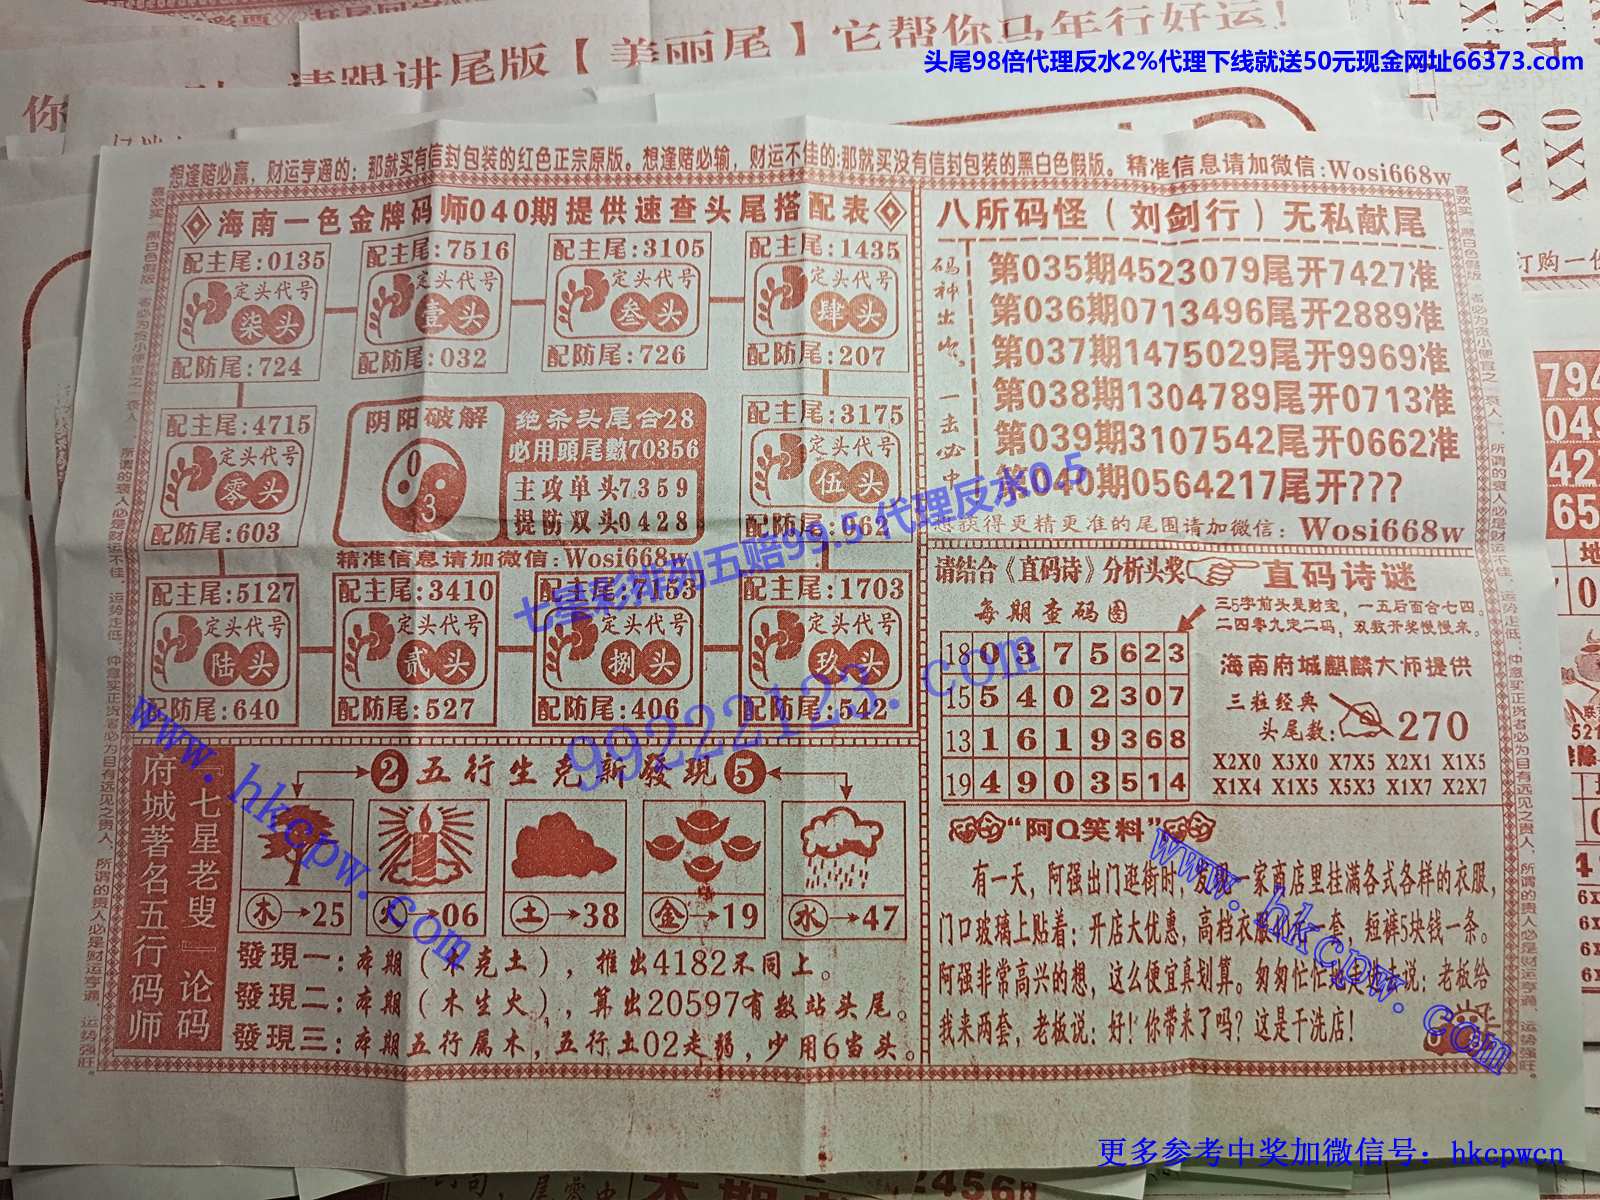 请跟讲尾版【美丽尾】它帮你马年行好运!
头尾98倍代理反水2%代理下线就送50元现金网址66373.com
想逢赌必赢，财运亨通的：那就买有信封包装的红色正宗原版。想逢赌必输，财运不佳的:那就买没有信封包装的黑白色假版。精准信息请加微信:Wosi668w
海南一色金牌码师040期提供速查头尾搭配表
配主尾:0135
定头代号
柒头
配防尾:724
配主尾:7516
定头代号
壹头
配防尾:032
配主尾:3105
定头代号
叁头
配防尾:726
配主尾:1435
定头代号
肆头
配防尾:207
配主尾:4715
定头代号
零头
配防尾:603
阴阳破解
0
3
绝杀头尾合28
必用頭尾數70356
主攻单头7359
提防双头0428
配主尾:3175
定头代号
伍头
配防尾:062
精准信息请加微信:Wosi668w
配主尾:5127
定头代号
陆头
配防尾:640
配主尾:3410
定头代号
贰头
配防尾:527
配主尾:7153
定头代号
捌头
配防尾:406
配主尾:1703
定头代号
玖头
配防尾:542
八所码怪（刘剑行）无私献尾
码神出吣、一击必中
第035期4523079尾开7427准
第036期0713496尾开2889准
第037期1475029尾开9969准
第038期1304789尾开0713准
第039期3107542尾开0662准
第040期0564217尾开???
想获得更精更准的尾围请加微信：Wosi668w
请结合《直码诗》分析头奖
直码诗谜
每期查码图
三5字前头是财宝，一五后面合七四。
二四零九定二码，双数开奖慢慢来。
18 0 3 7 5 6 2 3
15 5 4 0 2 3 0 7
13 1 6 1 9 3 6 8
19 4 9 0 3 5 1 4
海南府城麒麟大师提供
三粒经典
头尾数:
270
X2X0 X3X0 X7X5 X2X1 X1X5
X1X4 X1X5 X5X3 X1X7 X2X7
『七星老叟』论码
府城著名五行码师
2 五行生克新發現 5
木→25
火→06
土→38
金→19
水→47
發現一：本期（木克土），推出4182不同上。
發現二：本期（木生火），算出20597有数站头尾。
發現三：本期五行属木，五行土02走弱，少用6当头。
“阿Q笑料”
有一天，阿强出门逛街时，发现一家商店里挂满各式各样的衣服，
门口玻璃上贴着：开店大优惠，高档衣服10元一套，短裤5块钱一条。
阿强非常高兴的想，这么便宜真划算。匆匆忙忙走进去说：老板给
我来两套，老板说：好！你带来了吗？这是干洗店！
七星彩排列五赔99.5 代理反水0.5
99222123.com
www.hkcpw.com
www.hkcpw.com
更多参考中奖加微信号：hkcpwcn